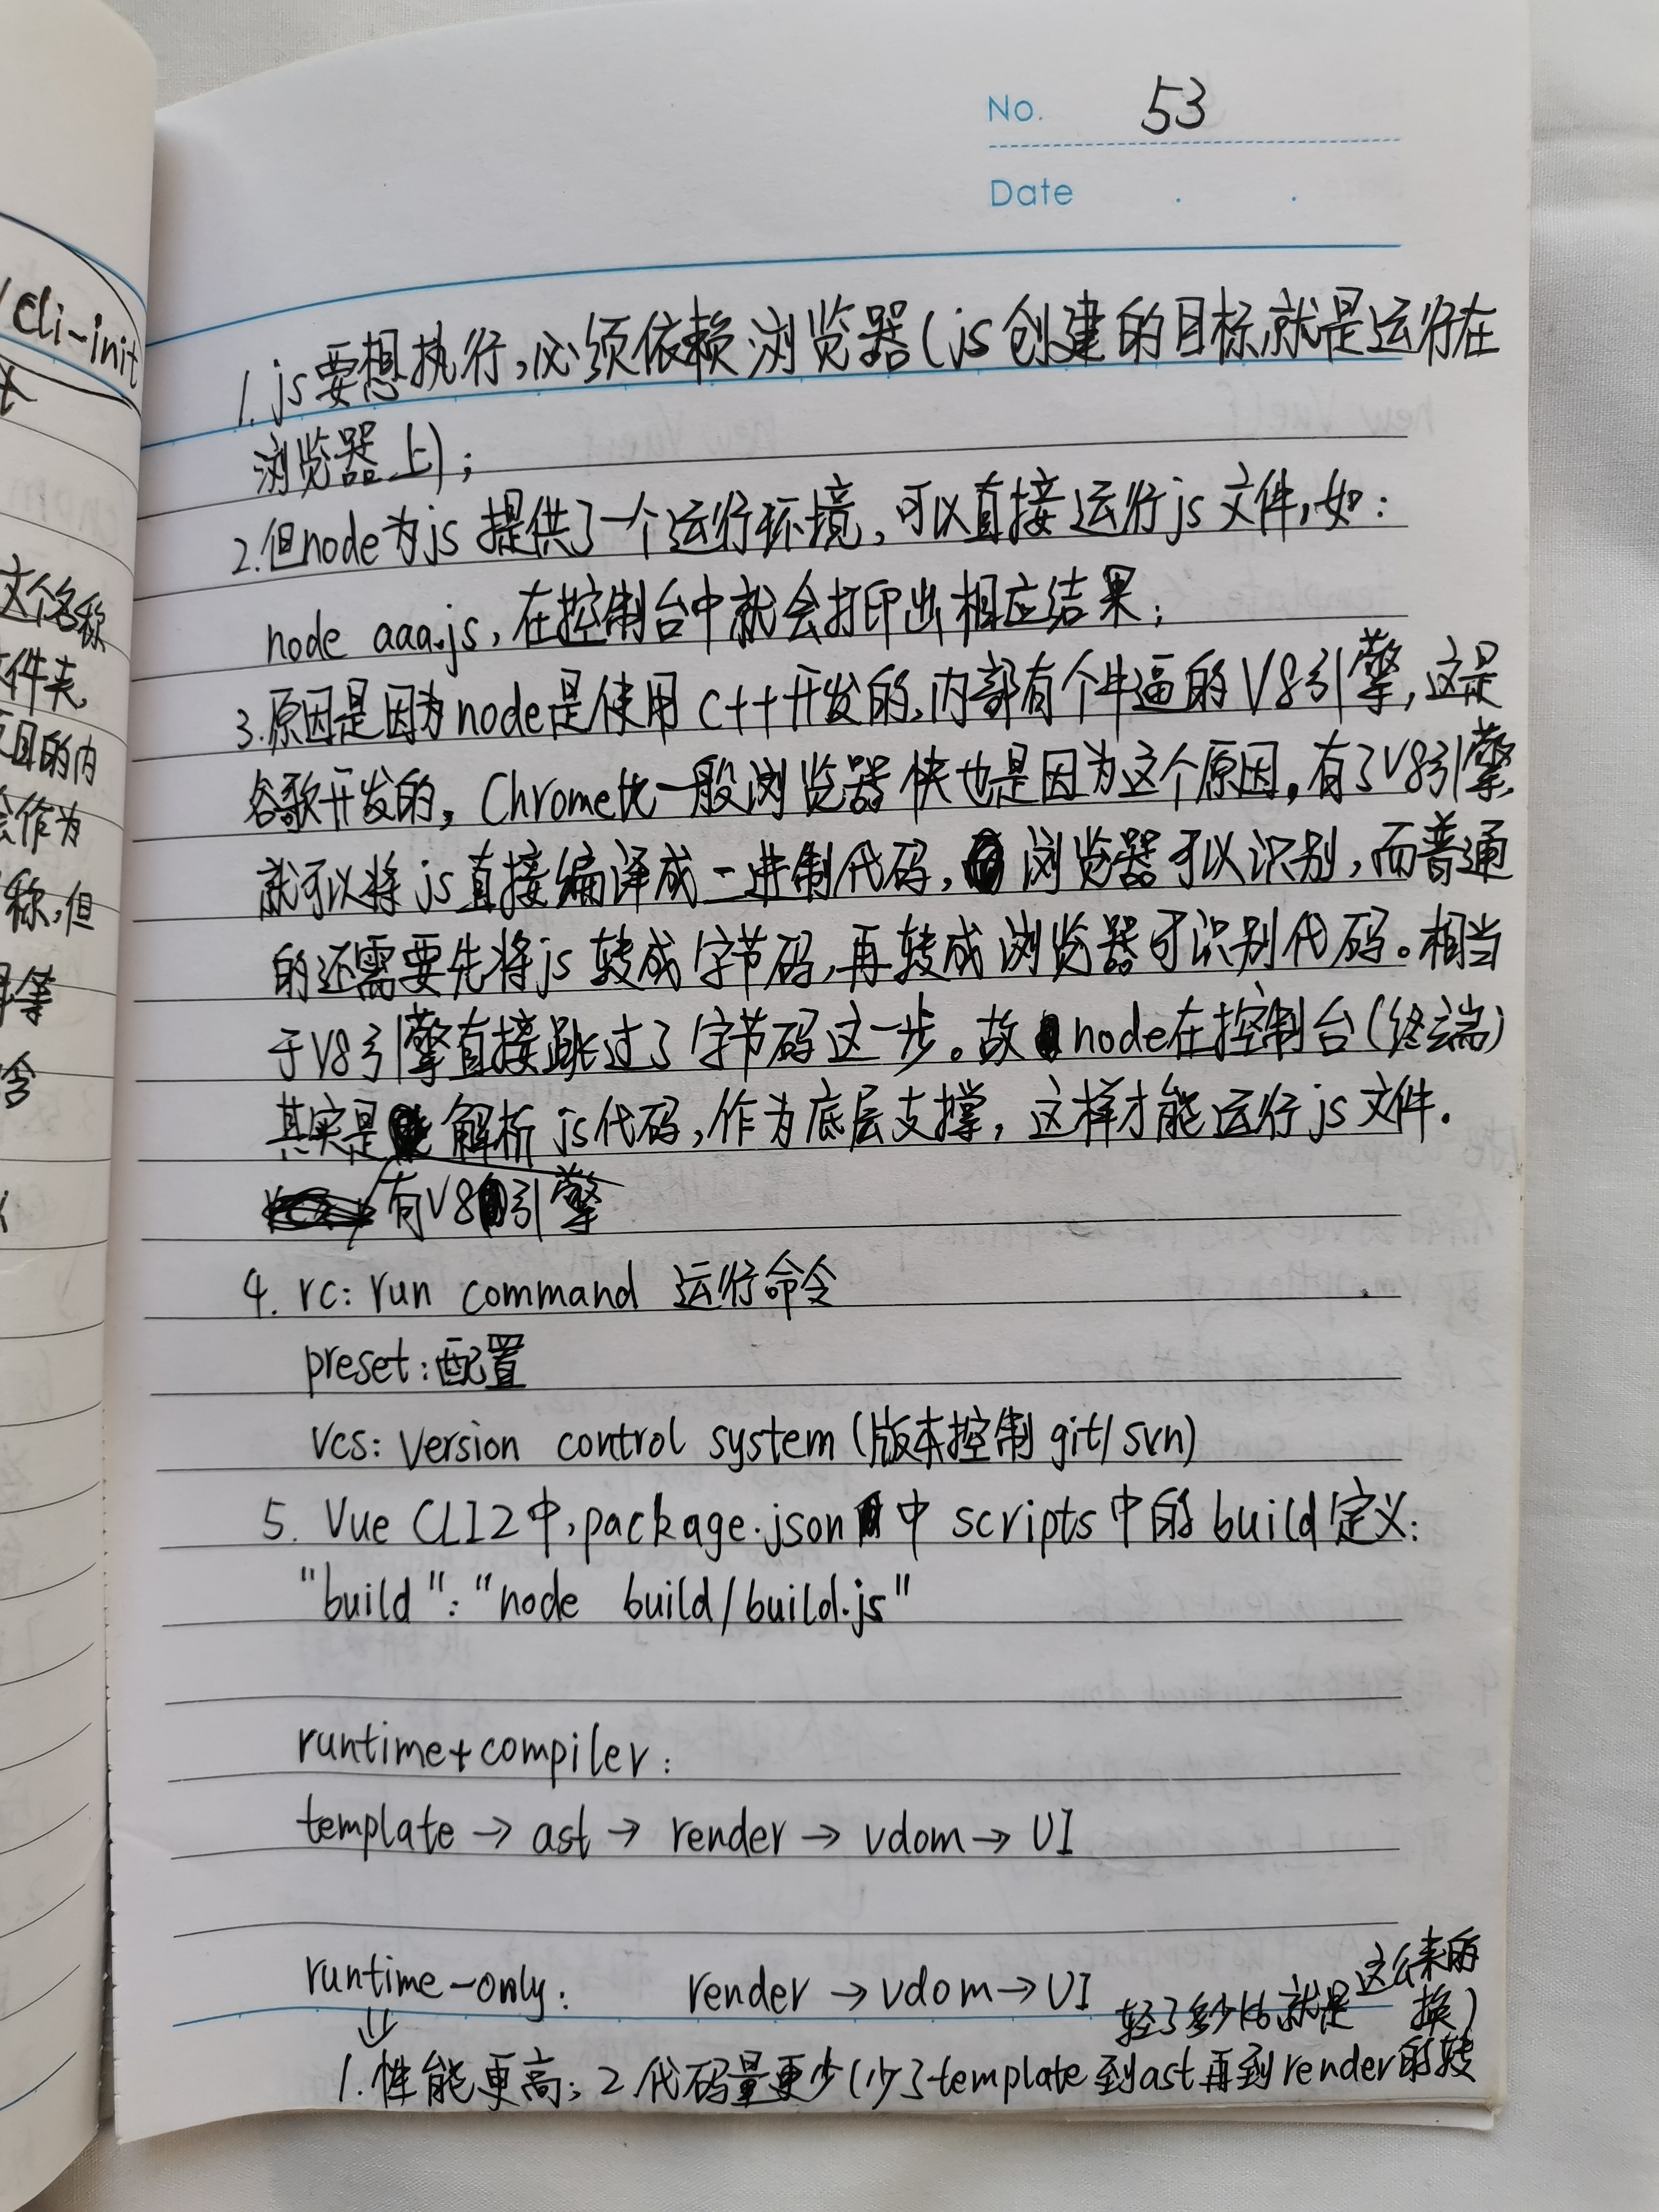 No. 53
Date . .
1. js要想执行,必须依赖浏览器(js创建的目标,就是运行在
浏览器上);
2.但node为js提供了一个运行环境,可以直接运行js文件,如:
node aaa.js,在控制台中就会打印出相应结果;
3.原因是因为node是使用C++开发的,内部有个牛逼的V8引擎,这是
谷歌开发的,Chrome比一般浏览器快也是因为这个原因,有了V8引擎,
就可以将js直接编译成二进制代码,浏览器可以识别,而普通
的还需要先将js转成字节码,再转成浏览器可识别代码。相当
于V8引擎直接跳过了字节码这一步。故node在控制台(终端)
其实是解析js代码,作为底层支撑,这样才能运行js文件.
有V8引擎
4. rc: run command 运行命令
preset:配置
vcs: Version control system (版本控制 git/svn)
5. Vue CLI2中,package.json中 scripts中的build定义:
"build":"node build/build.js"
runtime+compiler:
template → ast → render → vdom → UI
runtime-only: render → vdom → UI
⇓
1.性能更高; 2.代码量更少(少了template到ast再到render的转
换)
轻了多少kb就是这么来的
cli-init
文个名称
件夹,
目的内
会作为
称,但
等
含